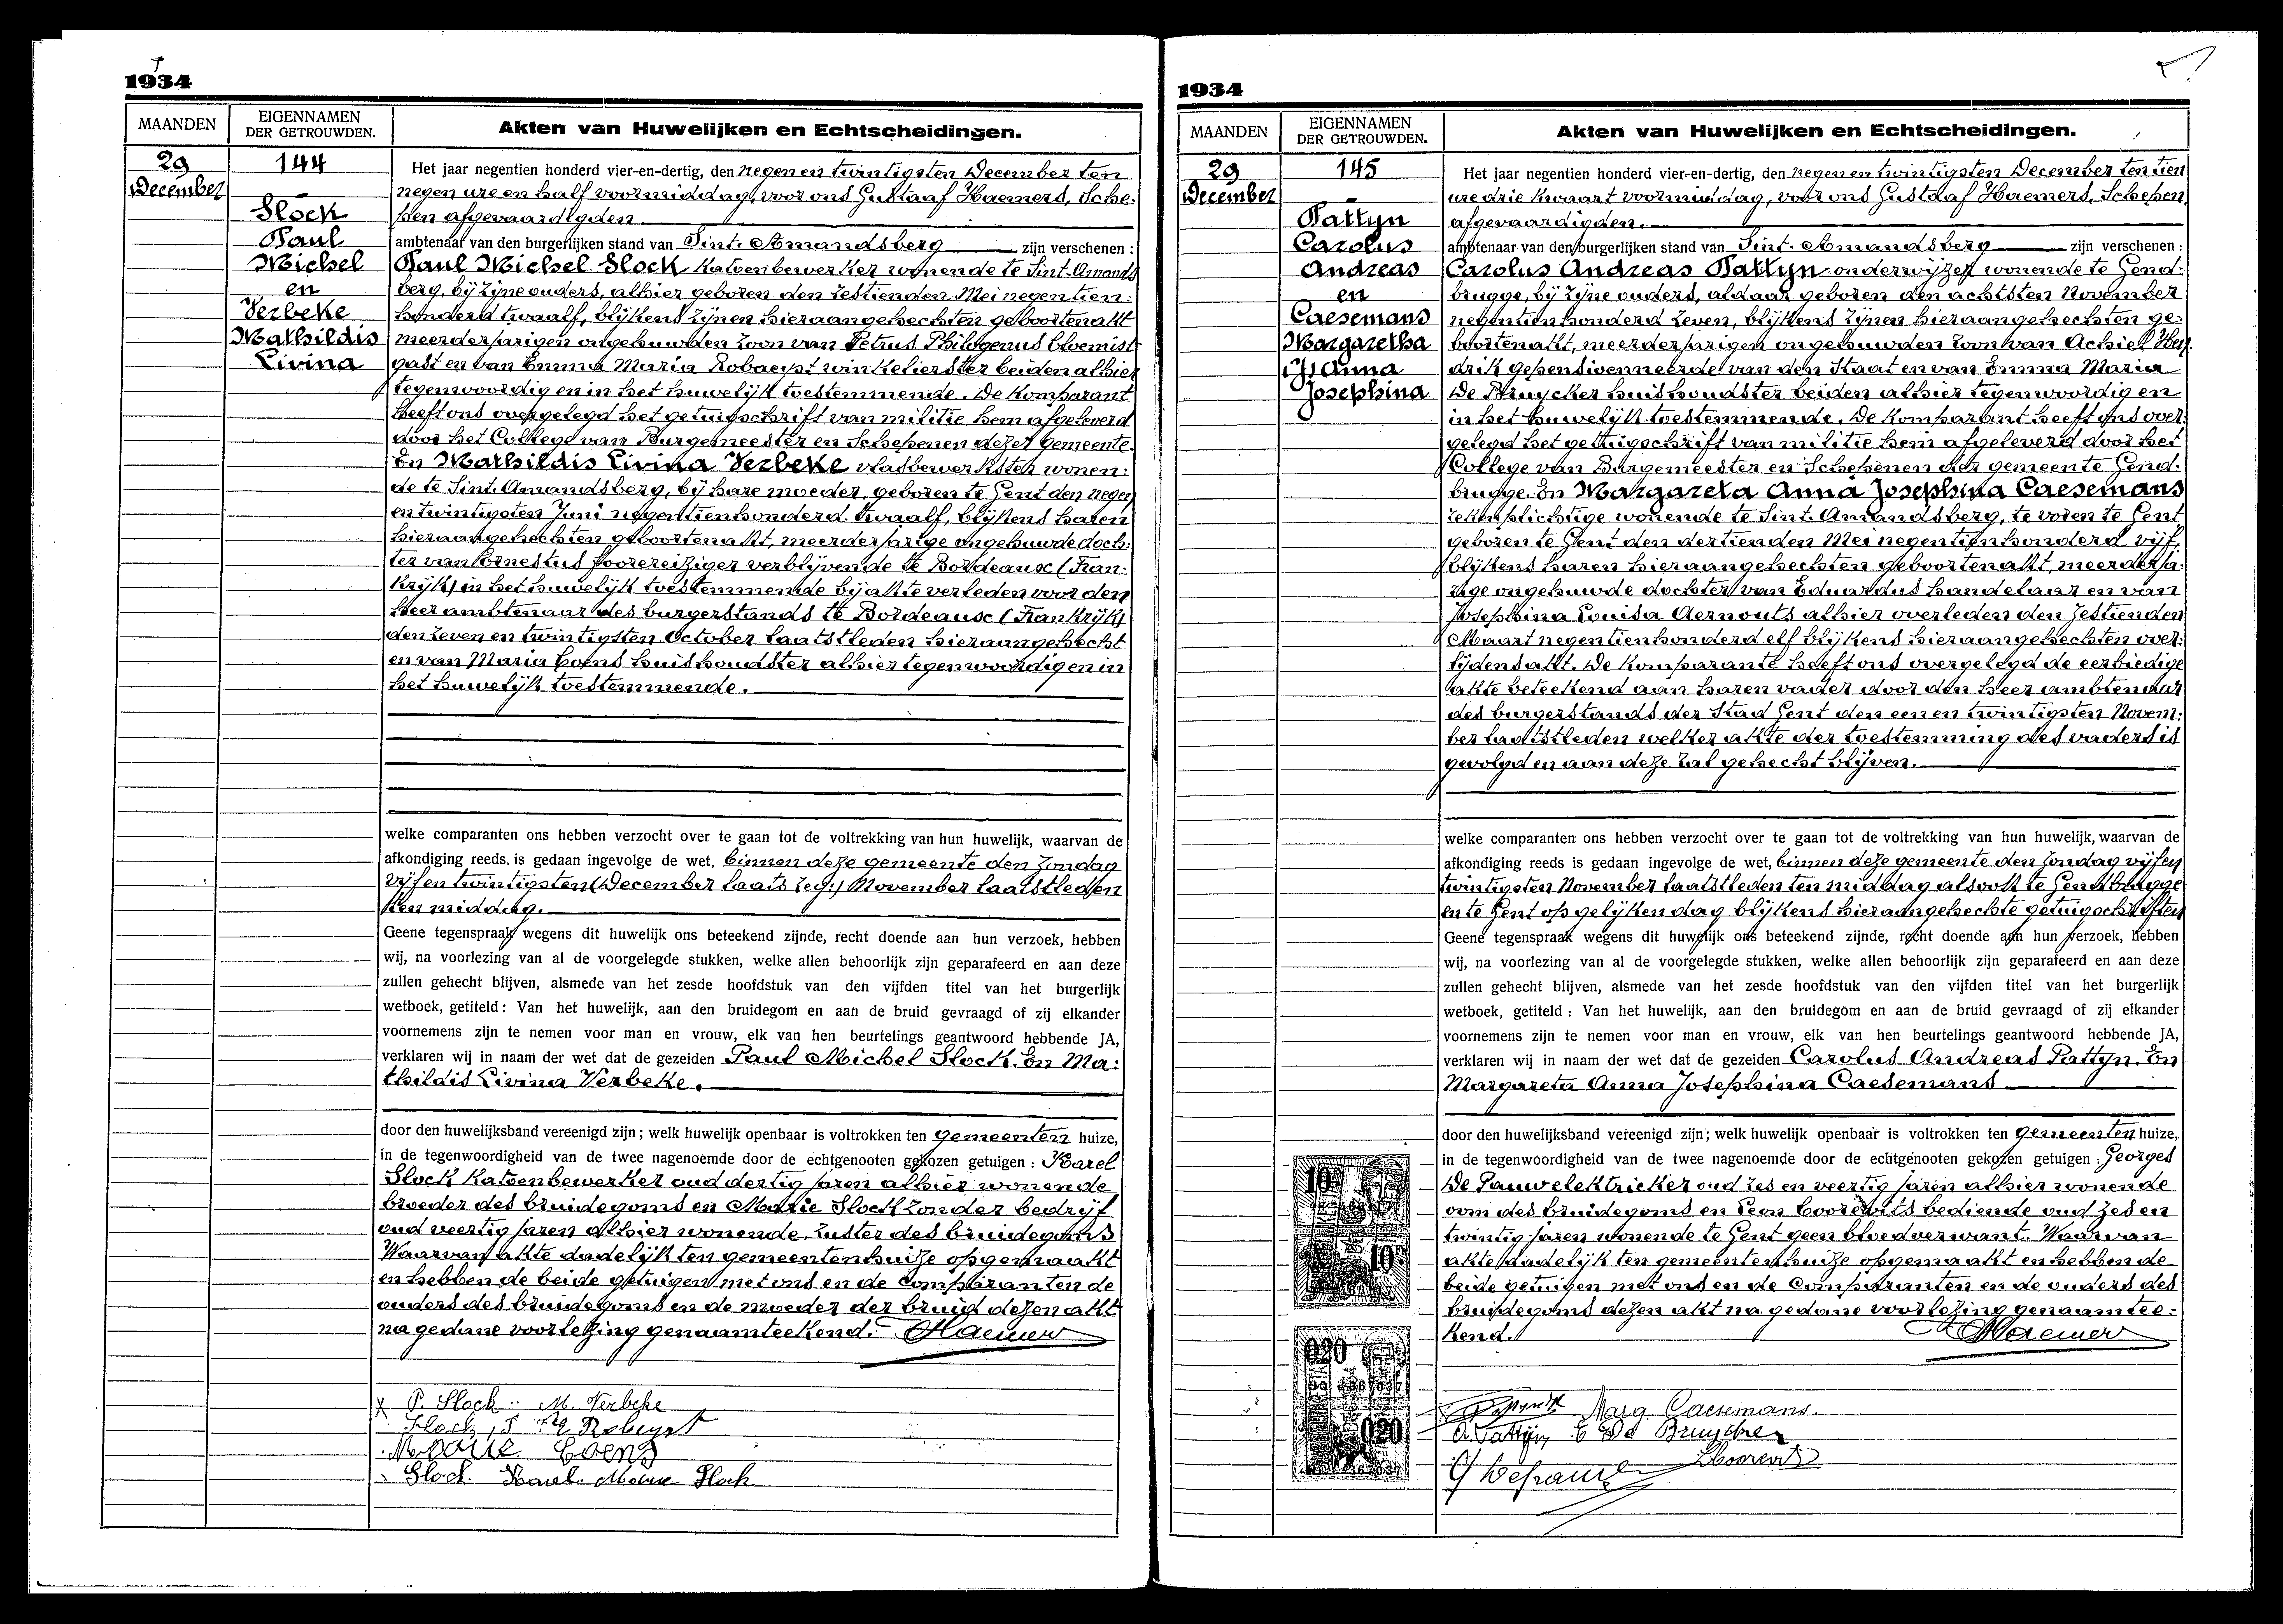 1934
MAANDEN
EIGENNAMEN
DER GETROUWDEN.
Akten van Huwelijken en Echtscheidingen.
29
December
144
Slock
Paul
Michel
en
Verbeke
Mathildis
Livina
Het jaar negentien honderd vier-en-dertig, den negen en twintigsten December ten
negen ure en half voormiddag, voor ons Gustaaf Haemers, Sche-
pen afgevaardigden
ambtenaar van den burgerlijken stand van Sint-Amandsberg zijn verschenen :
Paul Michel Slock katoenbewerker wonende te Sint-Amands
berg, bij zijne ouders, alhier geboren den zestienden Mei negentien:
honderd twaalf, blijkens zijnen hieraangehechten geboortenakt
meerderjarigen ongehuwden zoon van Petrus Philogenus bloemist
gast en van Emma Maria Robaeyst winkelierster beiden alhier
tegenwoordig en in het huwelijk toestemmende. De Komparant
heeft ons overgelegd het getuigschrift van militie hem afgeleverd
door het College van Burgemeester en Schepenen dezer gemeente.
En Mathildis Livina Verbeke vlasbewerkster wonen:
de te Sint-Amandsberg, bij hare moeder, geboren te Gent den negen
en twintigsten Juni negentienhonderd twaalf, blijkens haren
hieraangehechten geboortenakt, meerderjarige ongehuwde doch:
ter van Ernestus foorereiziger verblijvende te Bordeause (Fran:
krijk) in het huwelijk toestemmende bij akte verleden voor den
heer ambtenaar des burgerstands te Bordeause (Frankrijk)
den zeven en twintigsten October laatstleden hieraangehecht
en van Maria Coens huishoudster alhier tegenwoordig en in
het huwelijk toestemmende.
welke comparanten ons hebben verzocht over te gaan tot de voltrekking van hun huwelijk, waarvan de
afkondiging reeds is gedaan ingevolge de wet, binnen deze gemeente den Zondag
vijf en twintigsten (December laats zeg:) November laatstleden
ten middag.
Geene tegenspraak wegens dit huwelijk ons beteekend zijnde, recht doende aan hun verzoek, hebben
wij, na voorlezing van al de voorgelegde stukken, welke allen behoorlijk zijn geparafeerd en aan deze
zullen gehecht blijven, alsmede van het zesde hoofdstuk van den vijfden titel van het burgerlijk
wetboek, getiteld : Van het huwelijk, aan den bruidegom en aan de bruid gevraagd of zij elkander
voornemens zijn te nemen voor man en vrouw, elk van hen beurtelings geantwoord hebbende JA,
verklaren wij in naam der wet dat de gezeiden Paul Michel Slock. En Ma:
thildis Livina Verbeke.
door den huwelijksband vereenigd zijn ; welk huwelijk openbaar is voltrokken ten gemeenten huize,
in de tegenwoordigheid van de twee nagenoemde door de echtgenooten gekozen getuigen : Karel
Slock Katoenbewerker oud dertig jaren alhier wonende
broeder des bruidegoms en Marie Slock zonder bedrijf
oud veertig jaren alhier wonende, zuster des bruidegoms
Waarvan akte dadelijk ten gemeentenhuize opgemaakt
en hebben de beide getuigen met ons en de Comparanten de
ouders des bruidegoms en de moeder der bruid dezen akt
na gedane voorlezing genaamteekend. Haemers
P. Slock M. Verbeke
Slock
Marie Coens
Slock Karel. Marie Slock
1934
MAANDEN
EIGENNAMEN
DER GETROUWDEN.
Akten van Huwelijken en Echtscheidingen.
29
December
145
Pattyn
Carolus
Andreas
en
Caesemans
Margaretha
Anna
Josephina
Het jaar negentien honderd vier-en-dertig, den negen en twintigsten December ten tien
ure drie kwaart voormiddag, voor ons Gustaaf Haemers, Schepen
afgevaardigden.
ambtenaar van den burgerlijken stand van Sint-Amandsberg zijn verschenen :
Carolus Andreas Pattyn onderwijzer wonende te Gend-
brugge, bij zijne ouders, aldaar geboren den achtsten November
negentienhonderd zeven, blijkens zijnen hieraangehechten ge:
boortenakt, meerderjarigen ongehuwden zoon van Achiel Hen
drik gepensioenneerde van den Staat en van Emma Maria
De Bruycker huishoudster beiden alhier tegenwoordig en
in het huwelijk toestemmende. De Komparant heeft ons over:
gelegd het getuigschrift van militie hem afgeleverd door het
College van Burgemeester en Schepenen der gemeente Gend:
brugge. En Margareta Anna Josephina Caesemans
rekenplichtige wonende te Sint-Amandsberg, te voren te Gent
geboren te Gent den dertienden Mei negentienhonderd vijf,
blijkens haren hieraangehechten geboortenakt, meerderja:
rige ongehuwde dochter van Eduardus handelaar en van
Josephina Louisa Aernouts alhier overleden den zestienden
Maart negentienhonderd elf blijkens hieraangehechten over:
lijdensakt. De Komparante heeft ons overgelegd de eerbiedige
akte beteekend aan haren vader door den heer ambtenaar
des burgerstands der Stad Gent den een en twintigsten Novem:
ber laatstleden welker akte der toestemming des vaders is
gevolgd en aan deze zal gehecht blijven.
welke comparanten ons hebben verzocht over te gaan tot de voltrekking van hun huwelijk, waarvan de
afkondiging reeds is gedaan ingevolge de wet, binnen deze gemeente den Zondag vijf en
twintigsten November laatstleden ten middag alsook te Gendbrugge
en te Gent op gelijken dag blijkens hieraangehechte getuigschriften
Geene tegenspraak wegens dit huwelijk ons beteekend zijnde, recht doende aan hun verzoek, hebben
wij, na voorlezing van al de voorgelegde stukken, welke allen behoorlijk zijn geparafeerd en aan deze
zullen gehecht blijven, alsmede van het zesde hoofdstuk van den vijfden titel van het burgerlijk
wetboek, getiteld : Van het huwelijk, aan den bruidegom en aan de bruid gevraagd of zij elkander
voornemens zijn te nemen voor man en vrouw, elk van hen beurtelings geantwoord hebbende JA,
verklaren wij in naam der wet dat de gezeiden Carolus Andreas Pattyn. En
Margareta Anna Josephina Caesemans
door den huwelijksband vereenigd zijn ; welk huwelijk openbaar is voltrokken ten gemeenten huize,
in de tegenwoordigheid van de twee nagenoemde door de echtgenooten gekozen getuigen : Georges
De Pauw elektrieker oud zes en veertig jaren alhier wonende
oom des bruidegoms en Leon Coorevits bediende oud zes en
twintig jaren wonende te Gent geen bloedverwant. Waarvan
akte dadelijk ten gemeentenhuize opgemaakt en hebben de
beide getuigen met ons en de Comparanten en de ouders des
bruidegoms dezen akt na gedane voorlezing genaamtee-
kend. Haemers
Marg. Caesemans.
A. Pattyn E De Bruycker
G Depauw